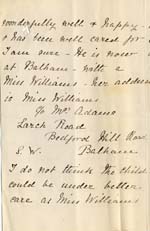 wonderfully well & happy -
& has been well cared for
I am sure - He is now
at Balham - with a
Miss Williams - her address
is Miss Williams
c/o Mrs Adams
Larch Road
Bedford Hill Road
S. W. Balham
I do not think the child
could be under better
care as Miss Williams